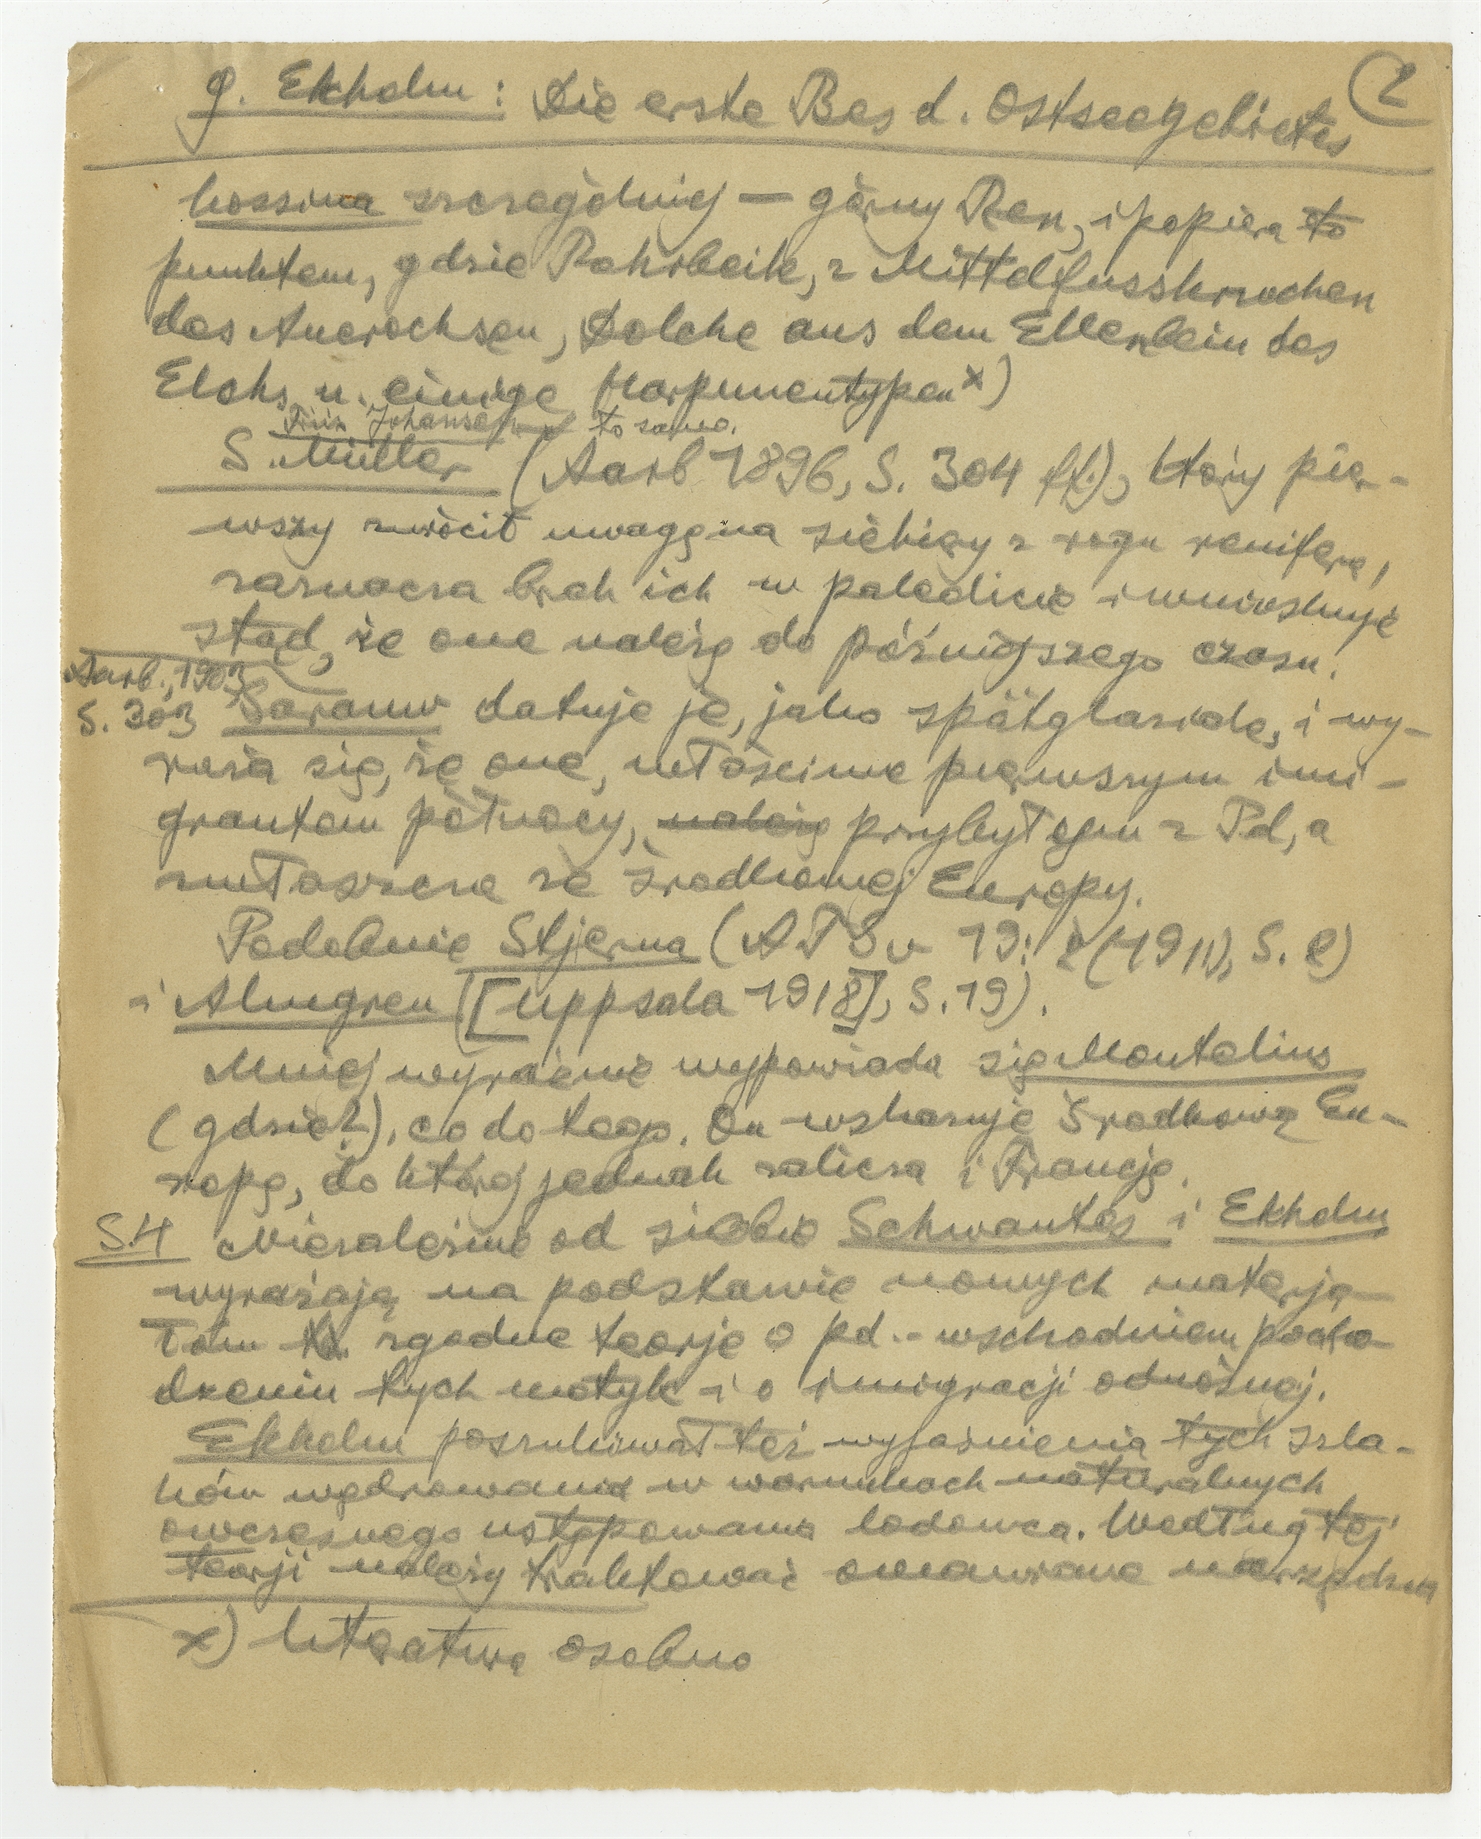 2
G. Ekholm: Die erste Bes d. Ostseegebietes
Kossina szczególniej — górny Ren, i popiera to
punktem, gdzie Rohrbeile, z Mittelfussknochen
des Auerochsen, Dolche aus dem Ellenbein des
Elchs u. einige Harpunentypen x)
Friis Johansen to samo.
S. Müller (Aarb 1896, S. 304 ff.), który pier-
wszy zwrócił uwagę na siekiery z rogu renifera,
zaznacza brak ich w paleolicie i wnioskuje
stąd, że one należą do późniejszego czasu.
Aarb., 1903
S. 303 Sarauw datuje je, jako spätglaziale, i wy-
raża się, że one, właściwe pierwszym imi-
grantom północy, należą przybyłem z Pd, a
zwłaszcza ze środkowej Europy.
Podobnie Stjerna (ATSv 19: 2 (1911), S. 2)
i Almgren ([Uppsala 1918], S. 19).
Mniej wyraźnie wypowiada się Montelius
(gdzie?), co do tego. On wskazuje Środkową Eu-
ropę, do której jednak zalicza i Francję.
S.4 Niezależnie od siebie Schwantes i Ekholm
wyrażają na podstawie nowych materja-
łów zgodne teorje o pd.-wschodniem pocho-
dzeniu tych motyk i o imigracji odnośnej.
Ekholm poszukiwał też wyjaśnienia tych szla-
ków wędrowania w warunkach naturalnych
owczesnego ustępowania lodowca. Według tej
teorji należy traktować omawiane narzędzia
x) literatura osobno